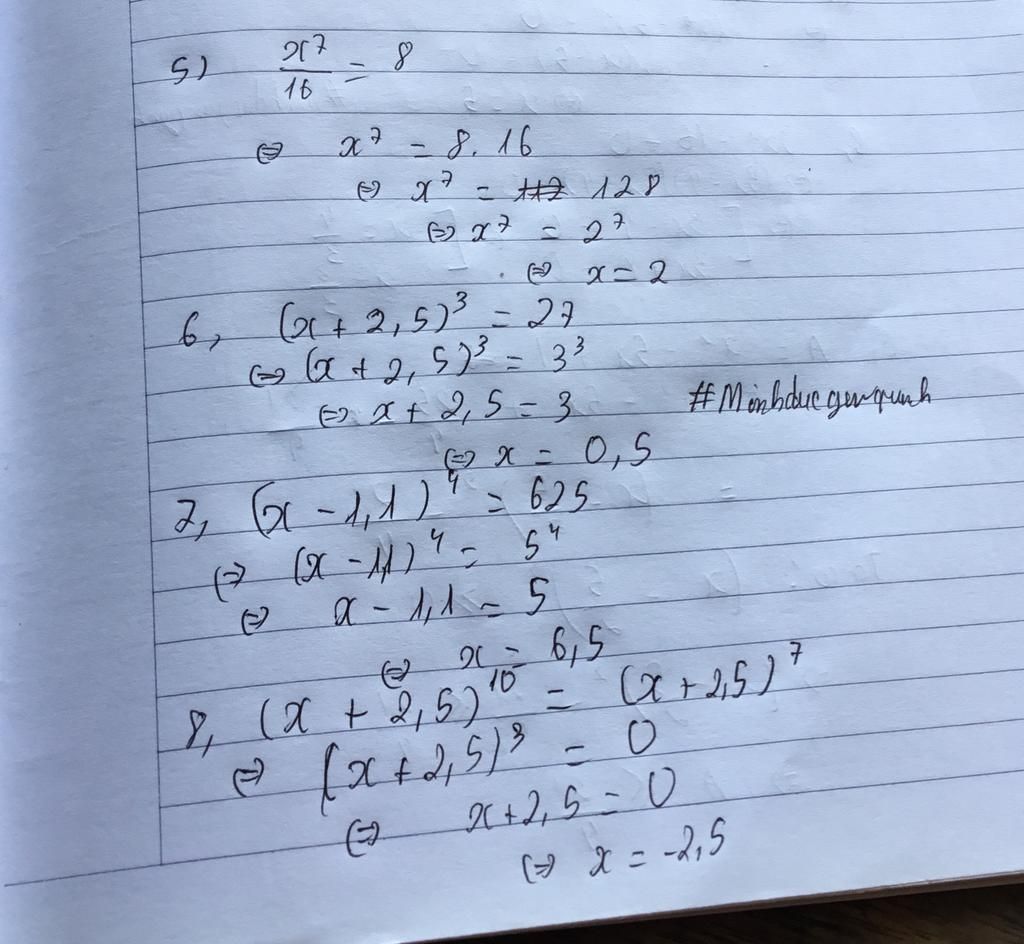 5) x⁷/16 = 8
⇔ x⁷ = 8.16
⇔ x⁷ = 128
⇔ x⁷ = 2⁷
⇔ x = 2
6, (x + 2,5)³ = 27
⇔ (x + 2,5)³ = 3³
⇔ x + 2,5 = 3
#Minhducgenqunh
⇔ x = 0,5
7, (x - 1,1)⁴ = 625
⇔ (x - 1,1)⁴ = 5⁴
⇔ x - 1,1 = 5
⇔ x = 6,5
8, (x + 2,5)¹⁰ = (x + 2,5)⁷
⇔ (x + 2,5)³ = 0
⇔ x + 2,5 = 0
⇔ x = -2,5